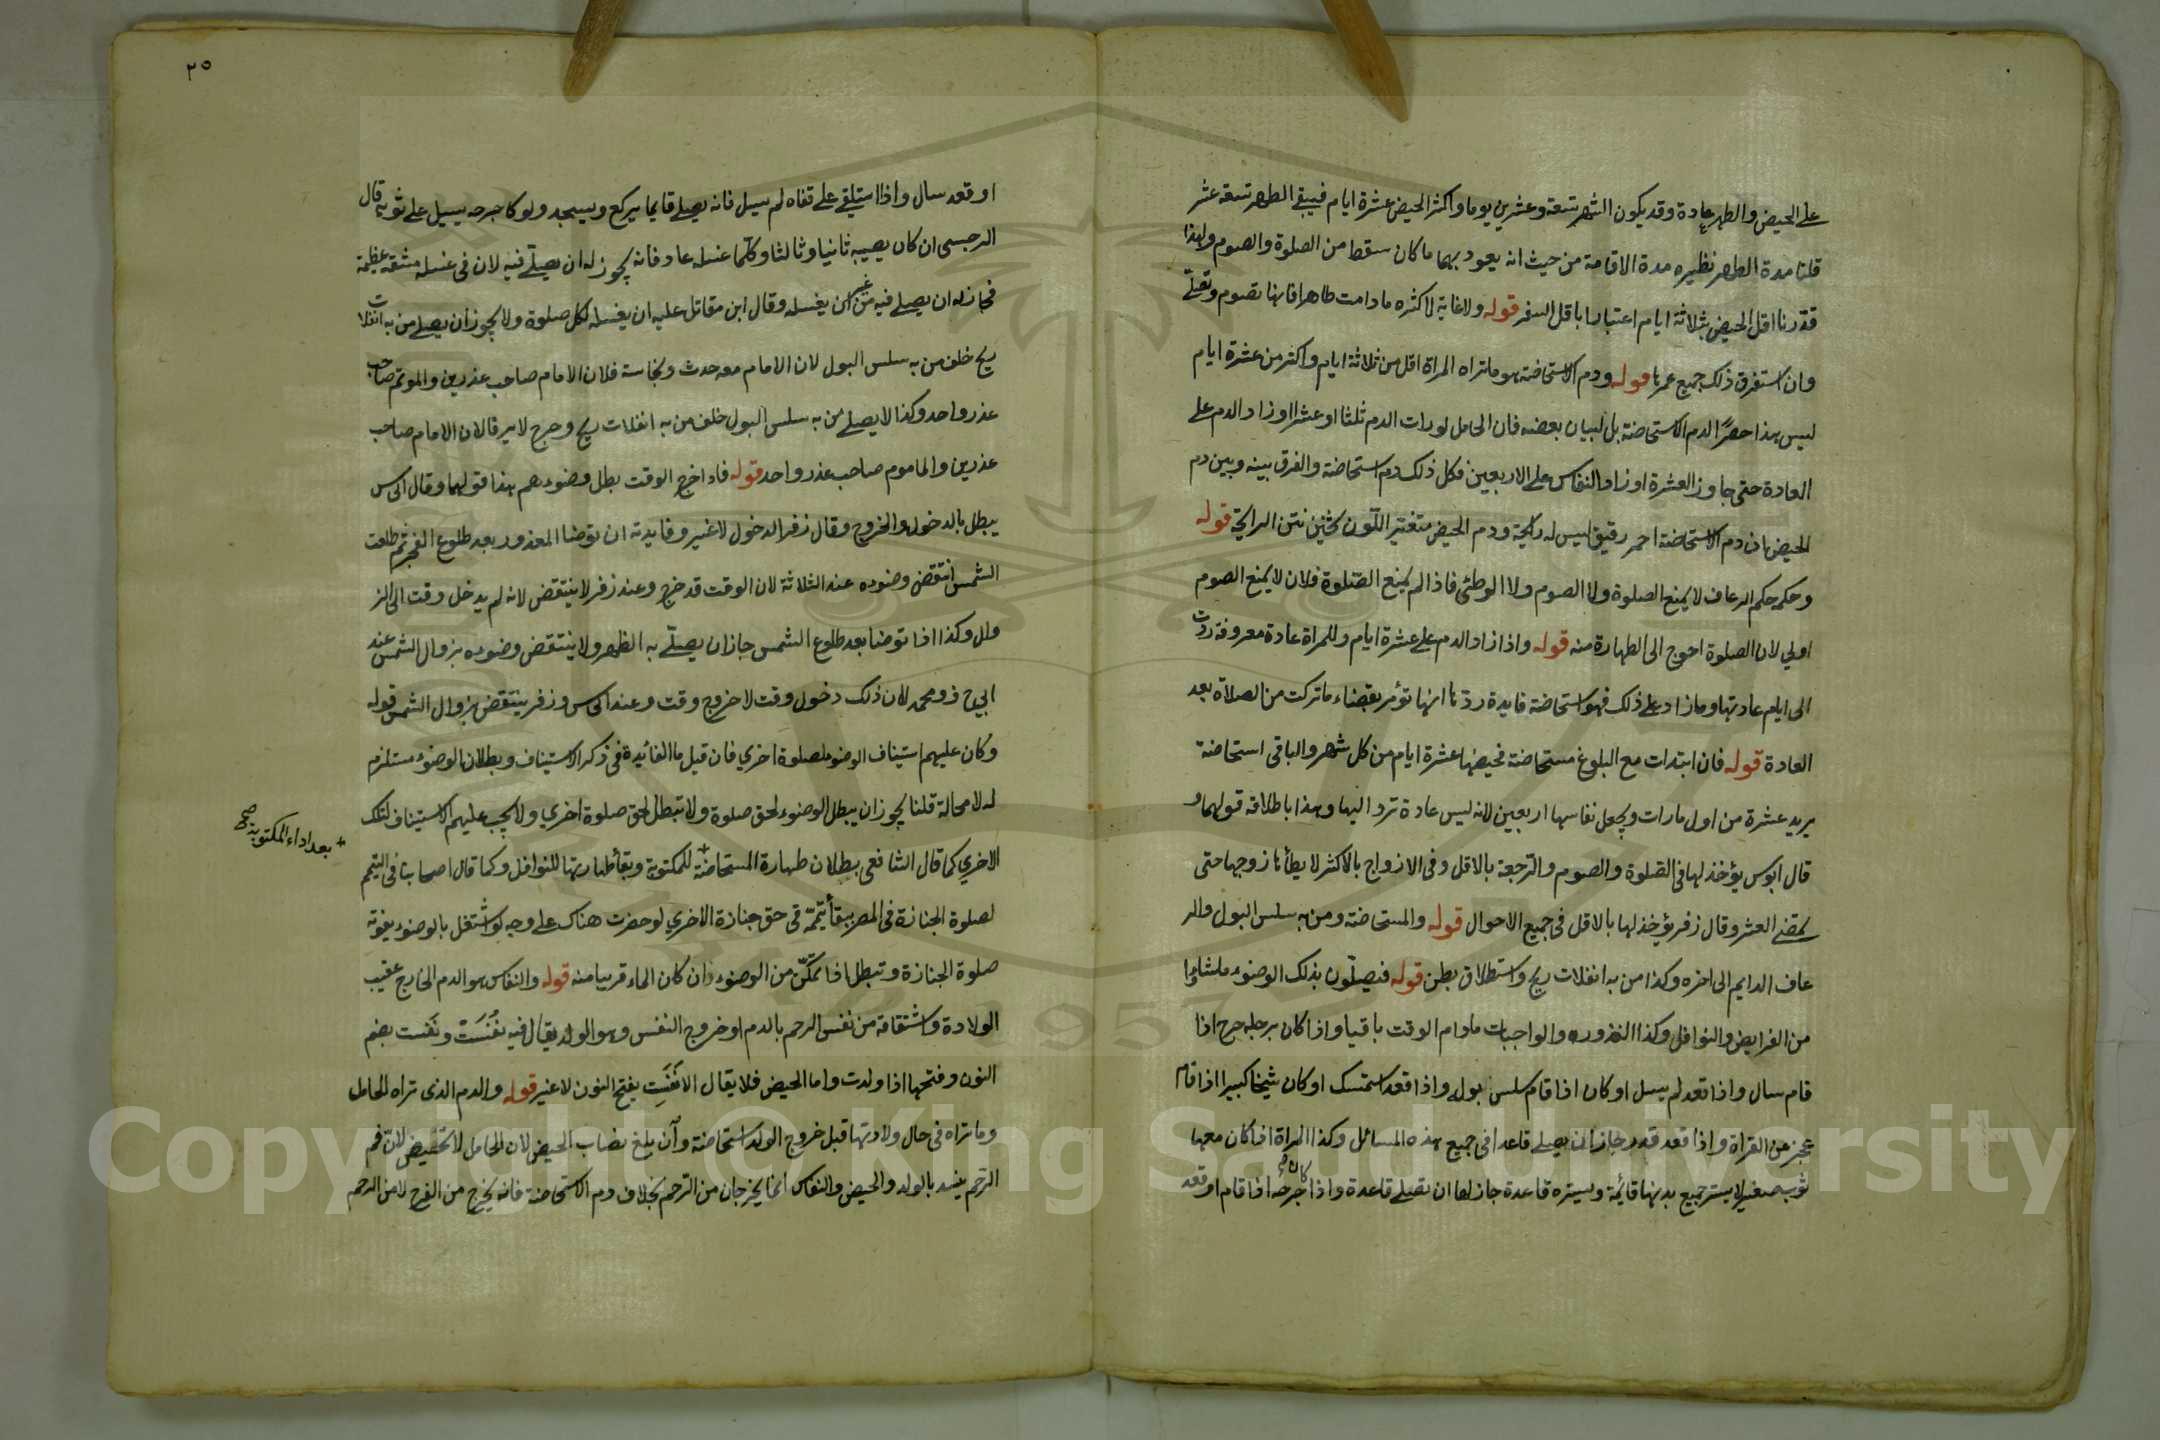 على الحيض والطهر عادة وقد يكون الشهر تسعة وعشرين يوما واكثر الحيض عشرة ايام فيبقى الطهر تسعة عشر
قلنا مدة الطهر نظيره مدة الاقامة من حيث انه يعود بهما ما كان سقط من الصلوة والصوم ولهذا
قدرنا اقل الحيض بثلاثة ايام اعتبارا باقل السفر قوله ولا غاية لاكثره ما دامت طاهرا فانها تصوم وتصلي
وان استغرق ذلك جميع عمرها قوله ودم الاستحاضة هو ما تراه المراة اقل من ثلاثة ايام واكثر من عشرة ايام
ليس هذا حصرًا لدم الاستحاضة بل لبيان بعضه فان الحامل لو رات الدم ثلثا او عشرا او زاد الدم على
العادة حتى جاوز العشرة او زاد النفاس على الاربعين فكل ذلك دم استحاضة والفرق بينه وبين دم
الحيض ان دم الاستحاضة احمر رقيق ليس له رائحة ودم الحيض متغير اللون ثخين نتن الرائحة قوله
وحكمه حكم الرعاف لا يمنع الصلوة ولا الصوم ولا الوطئ فاذا لم يمنع الصلوة فلان لا يمنع الصوم
اولي لان الصلوة احوج الى الطهارة منه قوله واذا زاد الدم على عشرة ايام وللمراة عادة معروفة ردت
الى ايام عادتها وما زاد على ذلك فهو استحاضة فايدة ردنا انها تؤمر بقضاء ما تركت من الصلاة بعد
العادة قوله فان ابتدات مع البلوغ مستحاضة فحيضها عشرة ايام من كل شهر والباقى استحاضة
يريد عشرة من اول ما رات ويجعل نفاسها اربعين لانه ليس عادة ترد اليها وهذا باطلاقه قولهما و
قال ابوس يؤخذ لها فى الصلوة والصوم والرجعة بالاقل وفى الازواج بالاكثر لا يطأها زوجها حتى
تمضى العشر وقال زفر يؤخذ لها بالاقل فى جميع الاحوال قوله والمستحاضة ومن به سلس البول والر
عاف الدايم الى اخره وكذا من به انفلات ريح واستطلاق بطن قوله فيصلّون بذلك الوضوء ما شاءوا
من الفرايض والنوافل وكذا النذور والواجبات مادام الوقت باقيا واذا كان برجله جرح اذا
قام سال واذا قعد لم يسل او كان اذا قام سلس بوله واذا قعد استمسك او كان شيخا كبيرا اذا قام
عجز عن القراة واذا قعد قدر جاز ان يصلي قاعدا فى جميع هذه المسائل وكذا المراة اذا كان معها
ثوب صغير لا يستر جميع بدنها قائمة ويستره قاعدة جاز لها ان تصلي قاعدة واذا كان جرحه اذا قام او قعد
٢٥
او قعد سال واذا استلقى على قفاه لم يسل فانه يصلي قايما يركع ويسجد ولو كا جرحه يسيل على ثوبه قال
السرخسى ان كان يصيبه ثانيا وثالثا وكلما غسله عاد فانه يجوز له ان يصلي فيه لان فى غسله مشقة عظيمة
فجاز له ان يصلي فيه من غير ان يغسله وقال ابن مقاتل عليه ان يغسله لكل صلوة ولا يجوز ان يصلي من به انفلات
ريح خلف من به سلس البول لان الامام معه حدث ونجاسة فلان الامام صاحب عذرين والموتم صاحب
عذر واحد وكذا لا يصلي من به سلس البول خلف من به انفلات ريح وجرح لا يرقا لان الامام صاحب
عذرين والماموم صاحب عذر واحد قوله فاذا خرج الوقت بطل وضوءهم هذا قولهما وقال ابى س
يبطل بالدخول والخروج وقال زفر الدخول لا غير وفايدته ان توضا المعذور بعد طلوع الفجر ثم طلعت
الشمس انتقض وضوءه عند الثلاثة لان الوقت قد خرج وعند زفر لا ينتقض لانه لم يدخل وقت الى الز
وال وكذا اذا توضا بعد طلوع الشمس جاز ان يصلي به الظهر ولا ينتقض وضوءه بزوال الشمس عند
ابى ح ومحمد لان ذلك دخول وقت لا خروج وقت وعند ابى س وزفر ينتقض بزوال الشمس قوله
وكان عليهم استيناف الوضوء لصلوة اخري فان قيل ما الفائدة فى ذكر الاستيناف وبطلان الوضوء مستلزم
له لا محالة قلنا يجوز ان يبطل الوضوء لحق صلوة ولا تبطل لحق صلوة اخري ولا يجب عليهم الاستيناف لتلك
الاخري كما قال الشافعى ببطلان طهارة المستحاضة للمكتوبة وبقأ طهارتها للنوافل وكما قال اصحابنا فى التيمم
+ بعد اداء المكتوبة صح
لصلوة الجنازة فى المصر يبقأ تيممه فى حق جنازة الاخري لو حضرت هناك على وجه لو اشتغل بالوضوء يفوته
صلوة الجنازة وتبطل اذا تمكن من الوضوء وان كان الماء قريبا منه قوله والنفاس هو الدم الخارج عقيب
الولادة واشتقاقه من نفس الرحم بالدم او خروج النفس وهو الولد يقال فيه نُفست ونفست بضم
النون وفتحها اذا ولدت واما الحيض فلا يقال الا نَفِست بفتح النون لا غير قوله والدم الذى تراه الحامل
وما تراه فى حال ولادتها قبل خروج الولد استحاضة وان بلغ نصاب الحيض لان الحامل لا تحيض لان فم
الرحم ينسد بالولد والحيض والنفاس انما يخرجان من الرحم بخلاف دم الاستحاضة فانه يخرج من الفرج لا من الرحم
Copyright © King Saud University